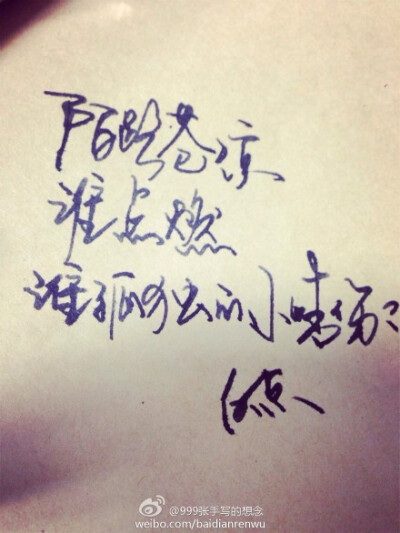 陌路苍凉
谁点燃
谁孤独的小情伤?
白点
@999张手写的想念
weibo.com/baidianrenwu